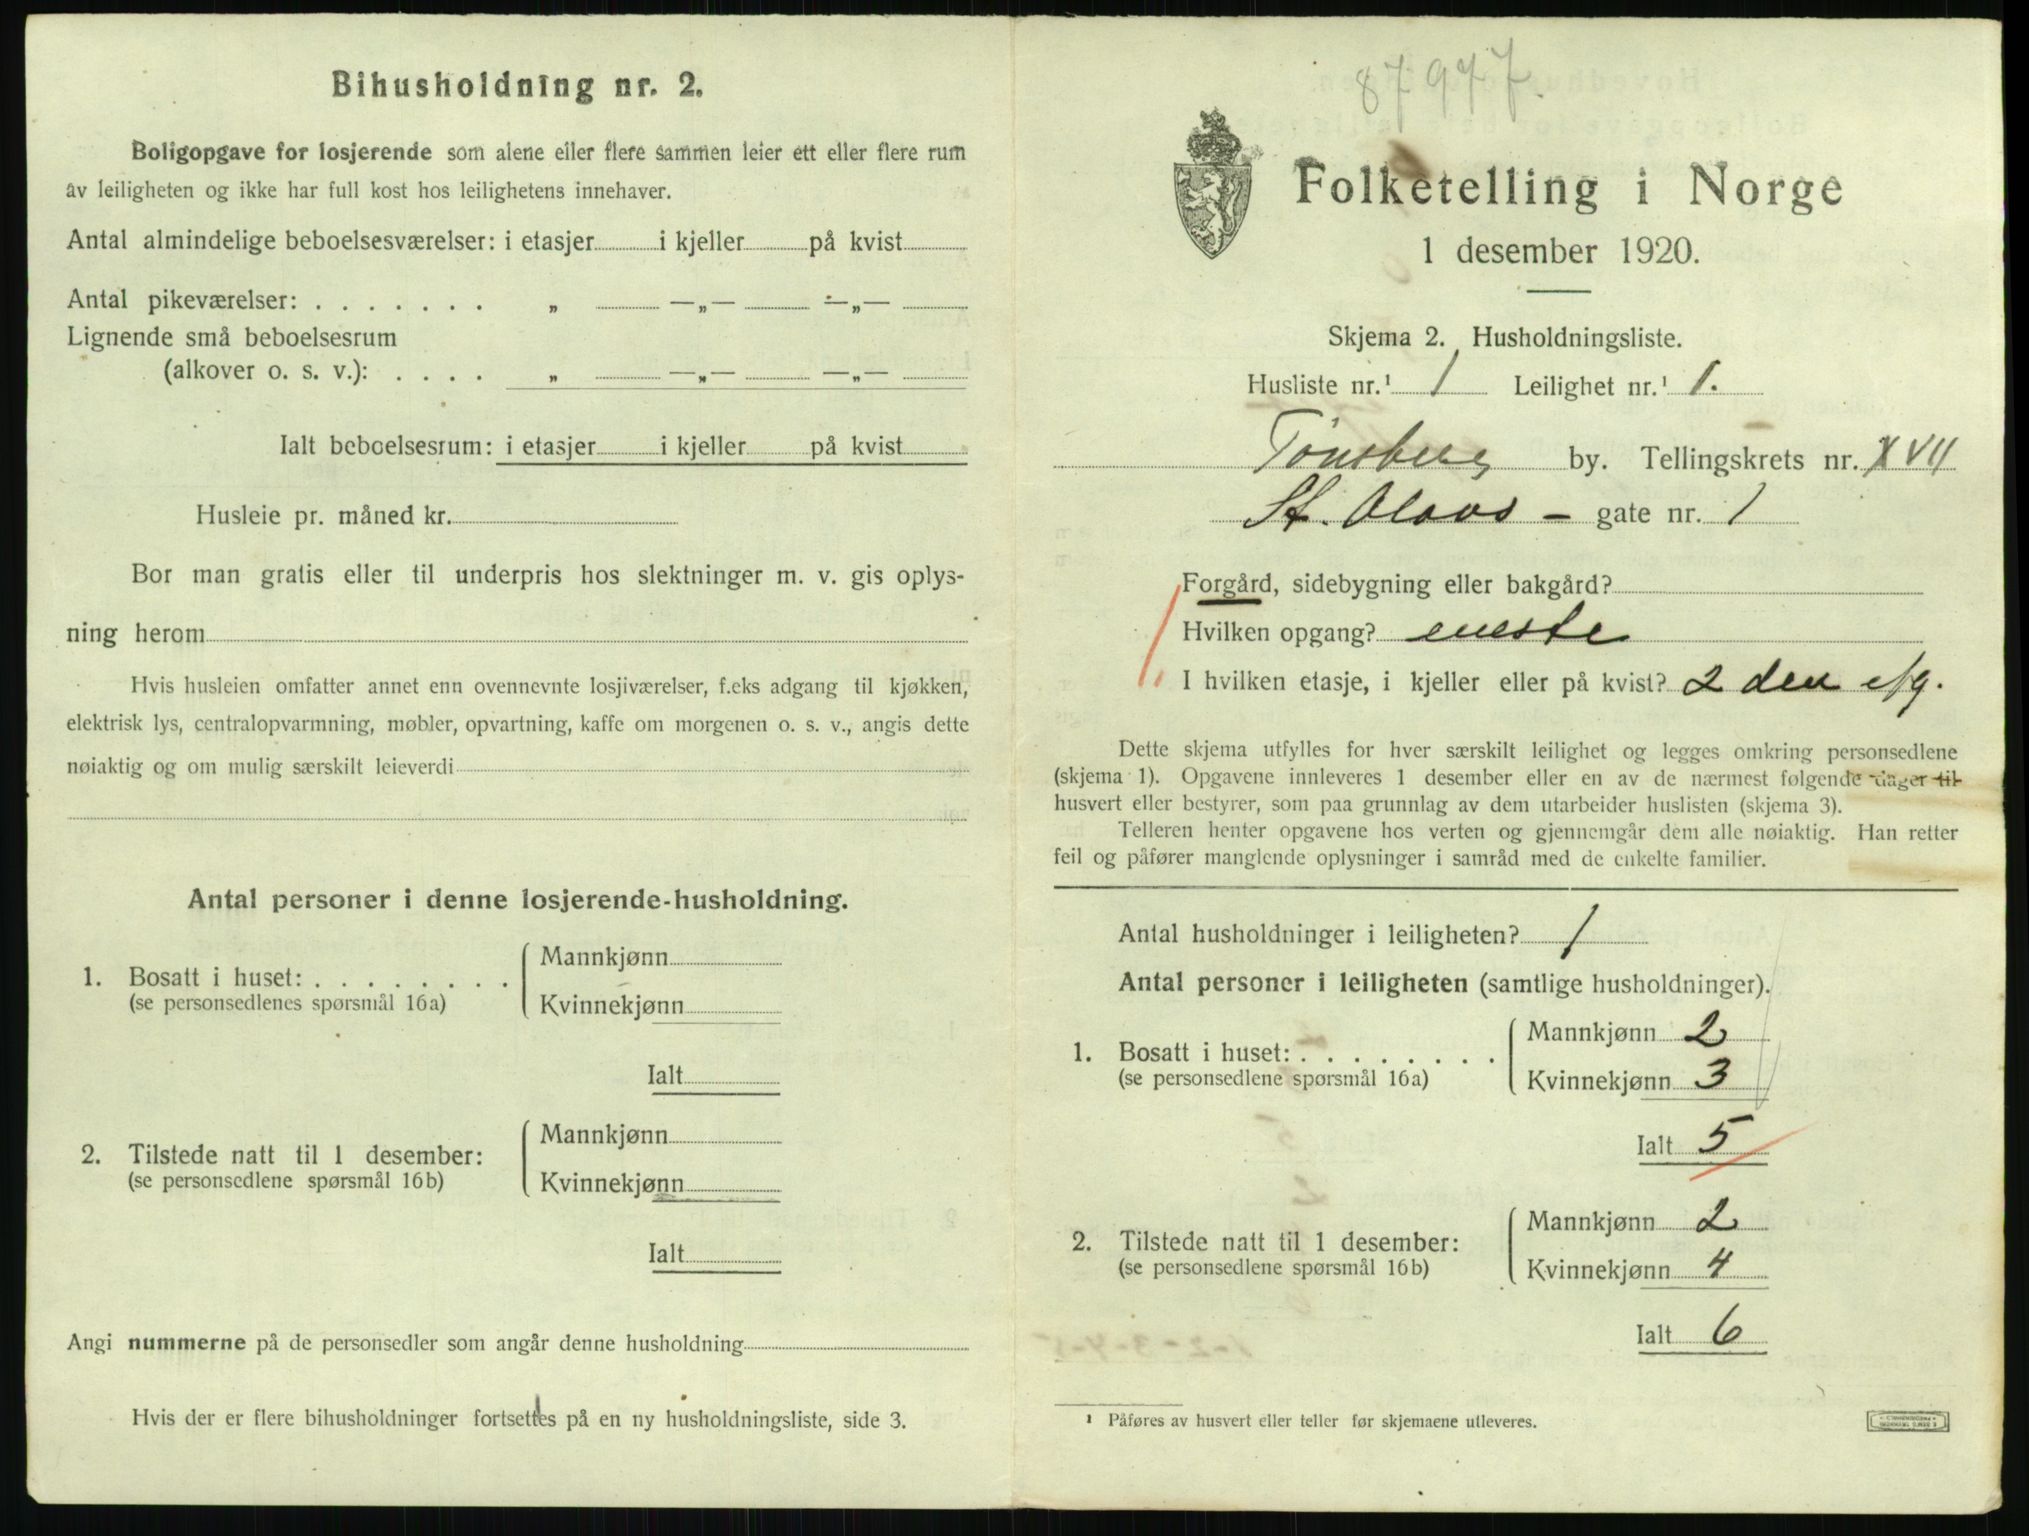 Bihusholdning nr. 2.
Boligopgave for losjerende som alene eller flere sammen leier ett eller flere rum
av leiligheten og ikke har full kost hos leilighetens innehaver.
Antal almindelige beboelsesværelser: i etasjer i kjeller på kvist
Antal pikeværelser: . . . . . . . „ —„— —„—
Lignende små beboelsesrum
(alkover o. s. v.): . . . . „ —„— —„—
Ialt beboelsesrum: i etasjer i kjeller på kvist
Husleie pr. måned kr.
Bor man gratis eller til underpris hos slektninger m. v. gis oplys-
ning herom
Hvis husleien omfatter annet enn ovennevnte losjiværelser, f.eks adgang til kjøkken,
elektrisk lys, centralopvarmning, møbler, opvartning, kaffe om morgenen o. s. v., angis dette
nøiaktig og om mulig særskilt leieverdi
Antal personer i denne losjerende-husholdning.
1. Bosatt i huset: . . . . . . . .
(se personsedlenes spørsmål 16a)
Mannkjønn
Kvinnekjønn
Ialt
2. Tilstede natt til 1 desember:
(se personsedlene spørsmål 16b)
Mannkjønn
Kvinnekjønn
Ialt
Angi nummerne på de personsedler som angår denne husholdning
Hvis der er flere bihusholdninger fortsettes på en ny husholdningsliste, side 3.
87977.
Folketelling i Norge
1 desember 1920.
Skjema 2. Husholdningsliste.
Husliste nr.¹ 1 Leilighet nr.¹ 1.
Tønsberg by. Tellingskrets nr. XVII
St. Olavs - gate nr. 1
Forgård, sidebygning eller bakgård?
Hvilken opgang? eneste
I hvilken etasje, i kjeller eller på kvist? 2 den etg.
Dette skjema utfylles for hver særskilt leilighet og legges omkring personsedlene
(skjema 1). Opgavene innleveres 1 desember eller en av de nærmest følgende dager til
husvert eller bestyrer, som paa grunnlag av dem utarbeider huslisten (skjema 3).
Telleren henter opgavene hos verten og gjennemgår dem alle nøiaktig. Han retter
feil og påfører manglende oplysninger i samråd med de enkelte familier.
Antal husholdninger i leiligheten? 1
Antal personer i leiligheten (samtlige husholdninger).
1. Bosatt i huset: . . . . . . . .
(se personsedlene spørsmål 16a)
Mannkjønn 2
Kvinnekjønn 3
Ialt 5
2. Tilstede natt til 1 desember:
(se personsedlene spørsmål 16b)
Mannkjønn 2
Kvinnekjønn 4
Ialt 6
¹ Påføres av husvert eller teller før skjemaene utleveres.